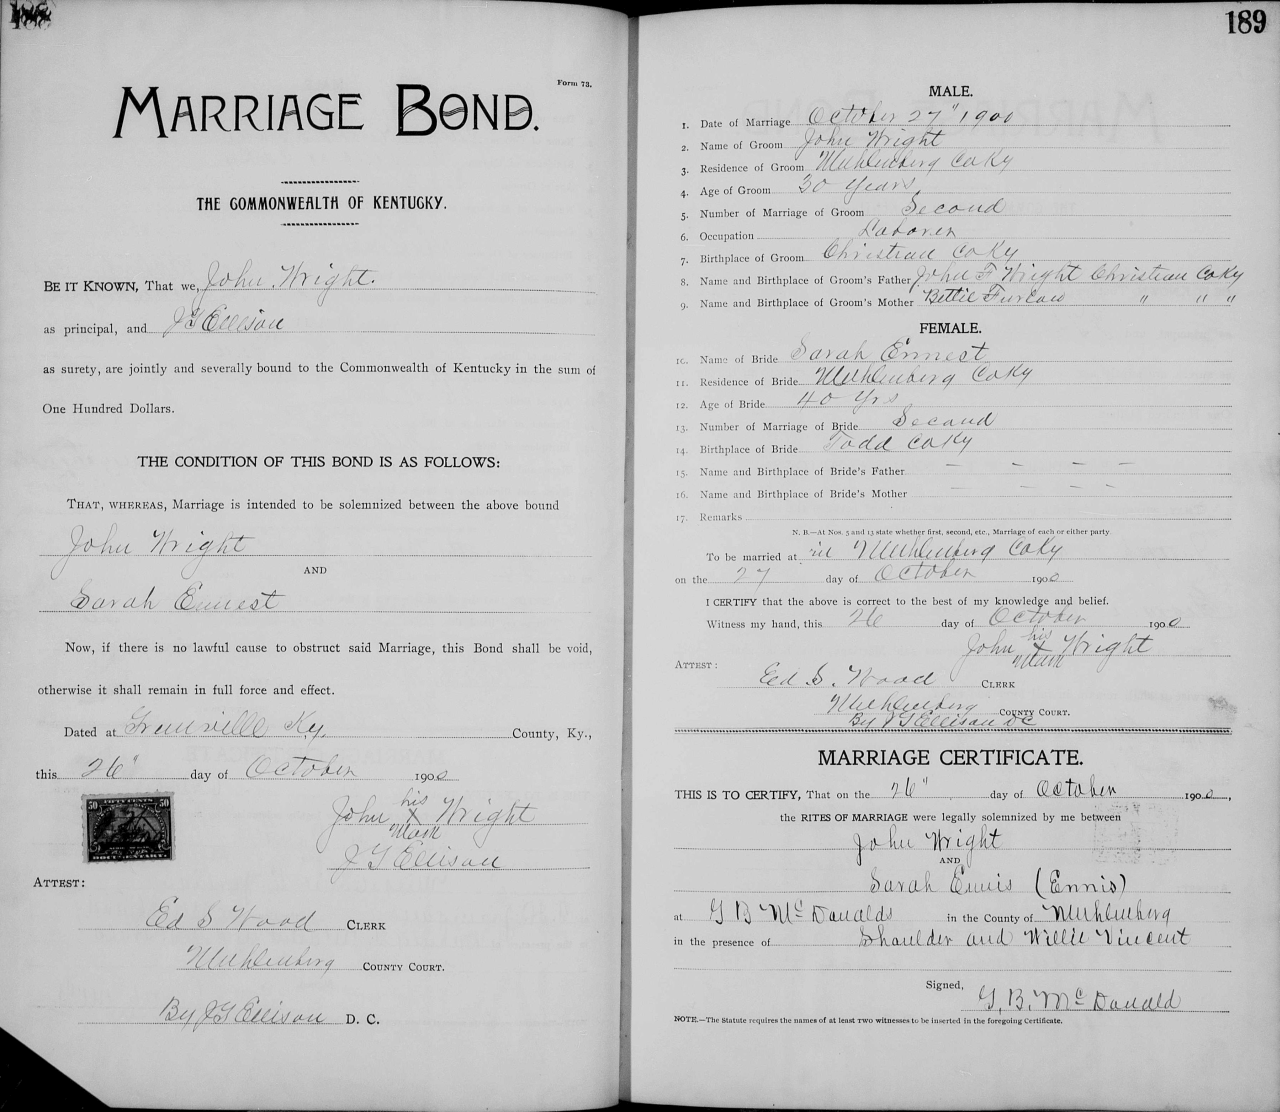 Form 73.
MARRIAGE BOND.
THE COMMONWEALTH OF KENTUCKY.
BE IT KNOWN, That we, John Wright.
as principal, and J G Ellison
as surety, are jointly and severally bound to the Commonwealth of Kentucky in the sum of
One Hundred Dollars.
THE CONDITION OF THIS BOND IS AS FOLLOWS:
THAT, WHEREAS, Marriage is intended to be solemnized between the above bound
John Wright
AND
Sarah Ennest
Now, if there is no lawful cause to obstruct said Marriage, this Bond shall be void,
otherwise it shall remain in full force and effect.
Dated at Greenville Ky. County, Ky.,
this 26" day of October 1900
50 FIFTY CENTS 50
DOCUMENTARY
his
John X Wright
Mark
J G Ellison
ATTEST:
Ed S Wood CLERK
Muhlenberg COUNTY COURT.
By J G Ellison D. C.
189
MALE.
1. Date of Marriage October 27" 1900
2. Name of Groom John Wright
3. Residence of Groom Muhlenberg Co Ky
4. Age of Groom 30 Years
5. Number of Marriage of Groom Second
6. Occupation Laborer
7. Birthplace of Groom Christian Co Ky
8. Name and Birthplace of Groom's Father John F Wright Christian Co Ky
9. Name and Birthplace of Groom's Mother Bettie Furlaw " " "
FEMALE.
10. Name of Bride Sarah Ennest
11. Residence of Bride Muhlenberg Co Ky
12. Age of Bride 40 Yrs
13. Number of Marriage of Bride Second
14. Birthplace of Bride Todd Co Ky
15. Name and Birthplace of Bride's Father – – – –
16. Name and Birthplace of Bride's Mother – – – –
17. Remarks
N. B.—At Nos. 5 and 13 state whether first, second, etc., Marriage of each or either party
To be married at in Muhlenberg Co Ky
on the 27 day of October 1900
I CERTIFY that the above is correct to the best of my knowledge and belief.
Witness my hand, this 26 day of October 1900
his
John X Wright
Mark
ATTEST:
Ed S. Wood CLERK
Muhlenberg COUNTY COURT.
By J G Ellison DC
MARRIAGE CERTIFICATE.
THIS IS TO CERTIFY, That on the 26" day of October 1900,
the RITES OF MARRIAGE were legally solemnized by me between
John Wright
AND
Sarah Ennis (Ennis)
at G B McDonalds in the County of Muhlenberg
in the presence of Shoulder and Willie Vincent
Signed,
G. B. McDonald
NOTE.—The Statute requires the names of at least TWO witnesses to be inserted in the foregoing Certificate.